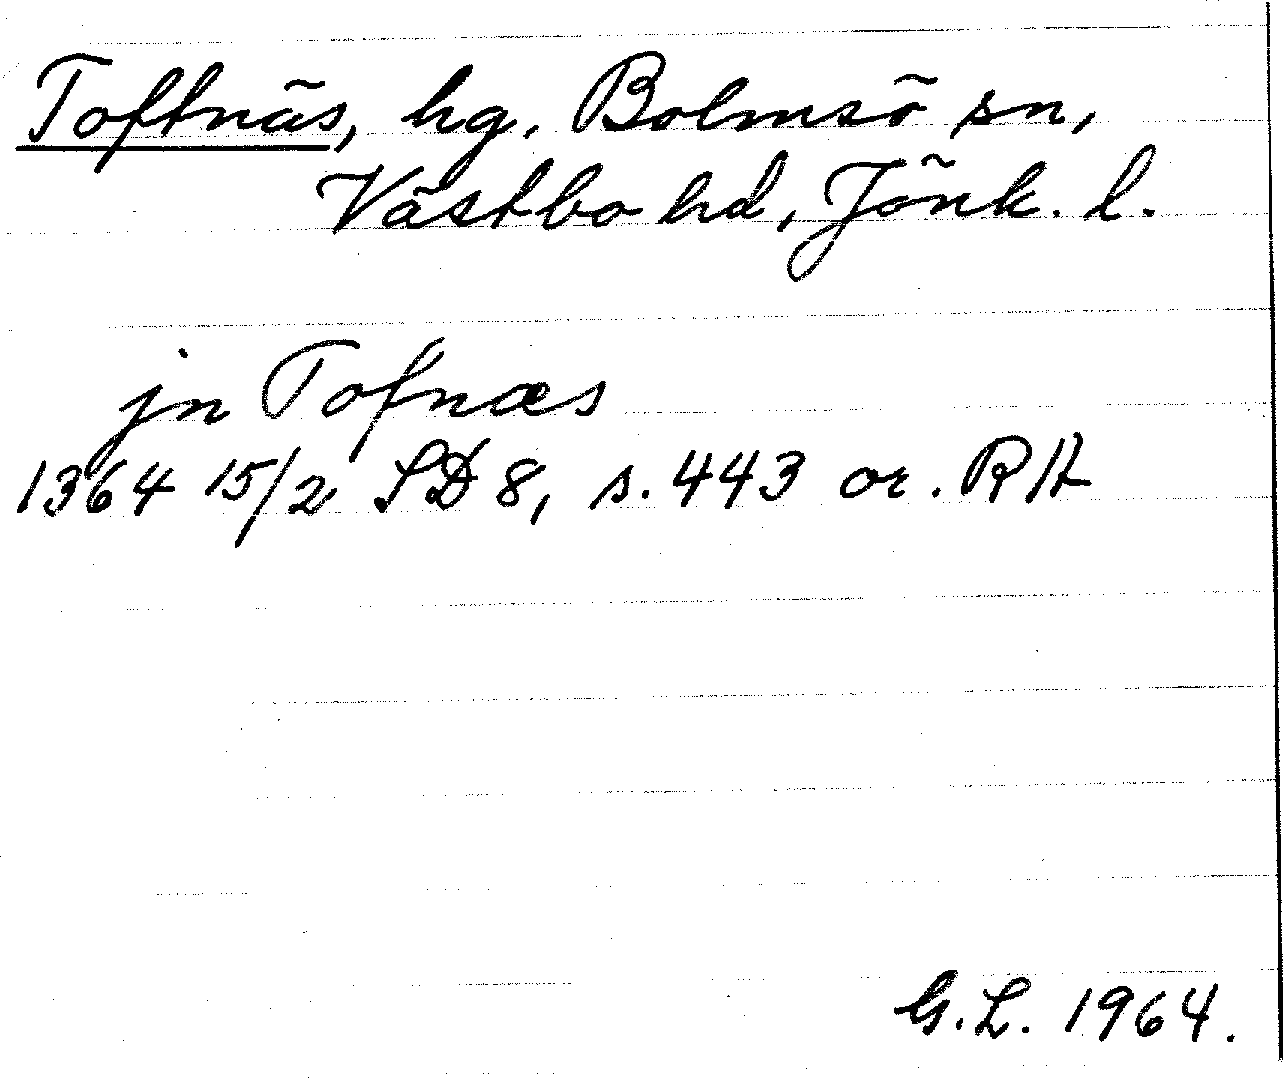 Toftnäs, hg. Bolmsö sn,
Västbo hd, Jönk. l.
jn Tofnæs
1364 15/2 SD 8, s. 443 or. RA
G.L. 1964.